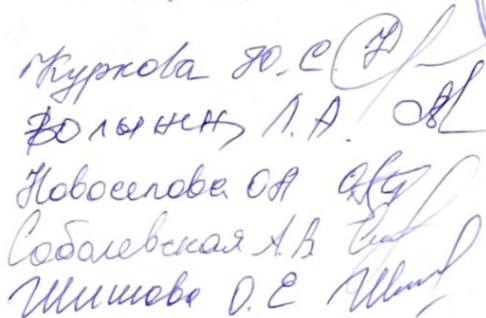 Куркова Ю.С
Л.А.
Новоселова ОА
Соболевская А.В
Шишова О.Е